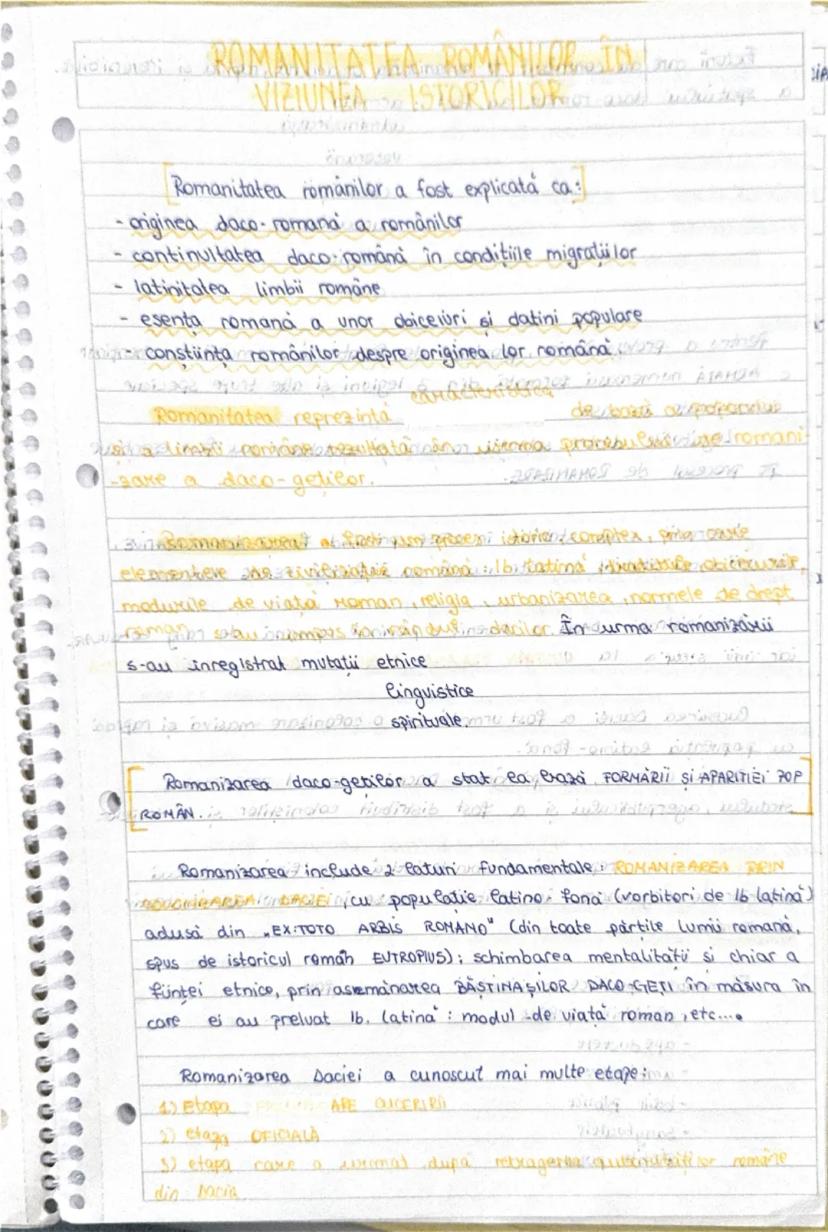 ROMANITATEA ROMÂNILOR ÎN
VIZIUNEA ISTORICILOR
Romanitatea românilor a fost explicată ca:
- originea daco-romană a românilor
- continuitatea daco-română în condițiile migrațiilor
- latinitatea limbii române
- esența romană a unor obiceiuri și datini populare
- conștiința românilor despre originea lor română
caracteristica
Romanitatea reprezintă de bază a poporului
și a limbii române rezultată în urma procesului de romani-
-zare a daco-geților.
Romanizarea a fost un proces istoric complex, prin care
elementele de civilizație romană: lb latină, tradițiile, obiceiurile,
modurile de viață roman, religia, urbanizarea, normele de drept
roman s-au impus în rândul dacilor. În urma romanizării
s-au înregistrat mutații etnice
lingvistice
spirituale.
Romanizarea daco-geților a stat la bază FORMĂRII ȘI APARIȚIEI POP
ROMÂN.
Romanizarea include 2 laturi fundamentale: ROMANIZAREA PRIN
COLONIZAREA DACIEI, cu populație latino-fonă (vorbitori de lb latină)
adusă din „EX:TOTO ARBIS ROMANO" (din toate părțile lumii romană,
spus de istoricul român EUTROPIUS); schimbarea mentalității și chiar a
ființei etnice, prin asemănarea BĂȘTINAȘILOR DACO-GEȚI în măsura în
care ei au preluat lb. latină: modul de viață roman, etc....
Romanizarea Daciei a cunoscut mai multe etape:
1) Etapa ARE CUCERIRII
2) etapa OFICIALĂ
3) etapa care a urmat după retragerea autorităților române
din Dacia